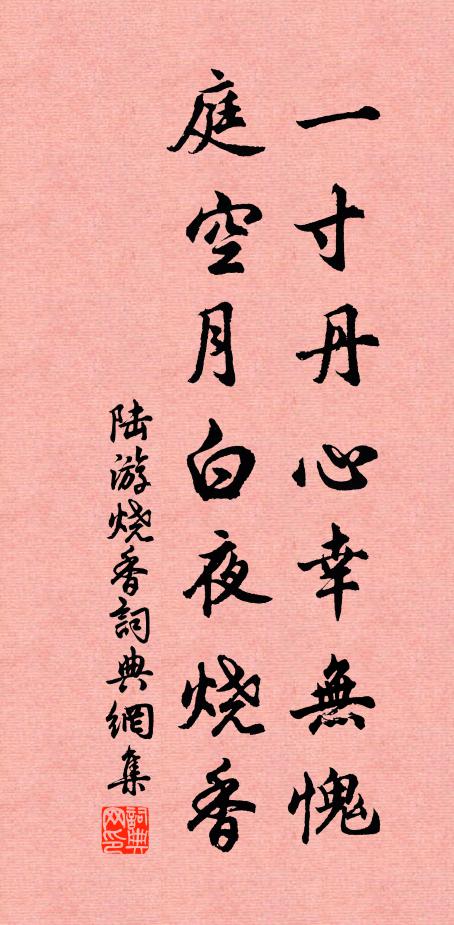 一寸丹心幸無愧
庭空月白夜烧香
陆游烧香詞典網集
詞典
网印